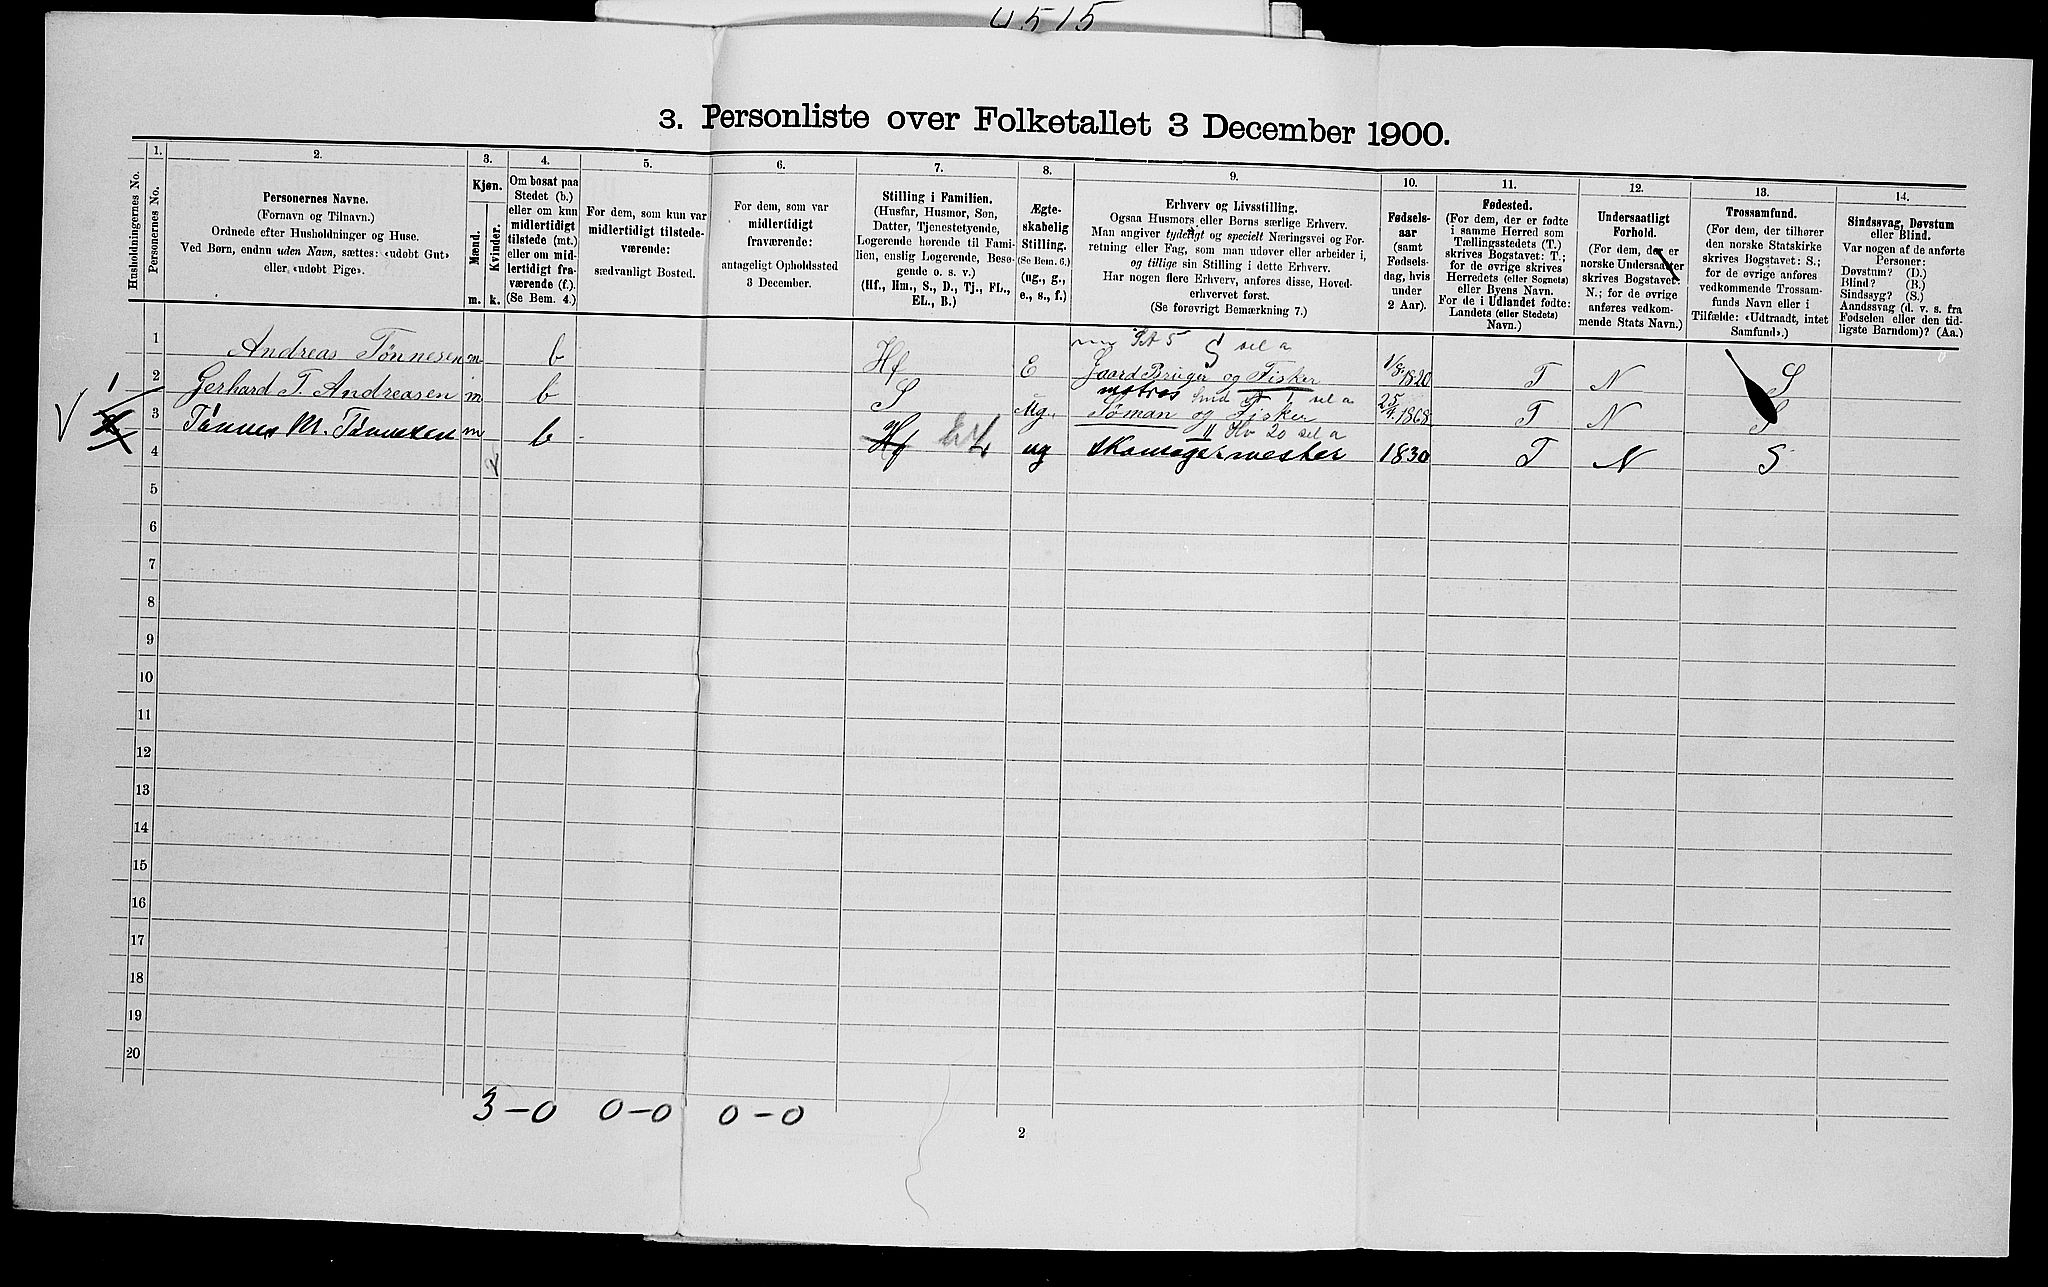 4515
3. Personliste over Folketallet 3 December 1900.
Husholdningernes No.
1.
Personernes No.
2.
Personernes Navne.
(Fornavn og Tilnavn.)
Ordnede efter Husholdninger og Huse.
Ved Børn, endnu uden Navn, sættes: «udobt Gut»
eller «udobt Pige».
3.
Kjøn.
Mænd.
Kvinder.
m. k.
4.
Om bosat paa
Stedet (b.)
eller om kun
midlertidigt
tilstede (mt.)
eller om mid-
lertidigt fra-
værende (f.).
(Se Bem. 4.)
5.
For dem, som kun var
midlertidigt tilstede-
værende:
sædvanligt Bosted.
6.
For dem, som var
midlertidigt
fraværende:
antageligt Opholdssted
3 December.
7.
Stilling i Familien.
(Husfar, Husmor, Søn,
Datter, Tjenestetyende,
Logerende hørende til Fami-
lien, enslig Logerende, Besø-
gende o. s. v.)
(Hf., Hm., S., D., Tj., FL.,
EL., B.)
8.
Ægte-
skabelig
Stilling.
(Se Bem. 6.)
(ug., g.,
e., s., f.)
9.
Erhverv og Livsstilling.
Ogsaa Husmors eller Børns særlige Erhverv.
Man angiver tydeligt og specielt Næringsvei og For-
retning eller Fag, som man udøver eller arbeider i,
og tillige sin Stilling i dette Erhverv.
Har nogen flere Erhverv, anføres disse, Hoved-
erhvervet først.
(Se forøvrigt Bemærkning 7.)
10.
Fødsels-
aar
(samt
Fødsels-
dag, hvis
under
2 Aar).
11.
Fødested.
(For dem, der er fødte
i samme Herred som
Tællingsstedets (T.)
skrives Bogstavet: T.;
for de øvrige skrives
Herredets (eller Sognets)
eller Byens Navn.
For de i Udlandet fødte:
Landets (eller Stedets)
Navn.)
12.
Undersaatligt
Forhold.
(For dem, der er
norske Undersaatter
skrives Bogstavet:
N.; for de øvrige
anføres vedkom-
mende Stats Navn.)
13.
Trossamfund.
(For dem, der tilhører
den norske Statskirke
skrives Bogstavet: S.;
for de øvrige anføres
vedkommende Trossam-
funds Navn eller i
Tilfælde: «Udtraadt, intet
Samfund».)
14.
Sindssvag, Døvstum
eller Blind.
Var nogen af de anførte
Personer:
Døvstum? (D.)
Blind? (B.)
Sindssyg? (S.)
Aandssvag (d. v. s. fra
Fødselen eller den tid-
ligste Barndom)? (Aa.)
5 sel a
1 Andreas Tønnesen m b Hf E Gaard Bruger og Fisker 1/8 1820 T N S
matros sel a
2 Gerhard T. Andreasen m b S Ug. Söman og Fisker 25/4 1868 T N S
20 sel a
3 Tönnes M. Tönnesen m b Hf EL ug skomagermester 1830 T N S
4
5
6
7
8
9
10
11
12
13
14
15
16
17
18
19
20
3-0 0-0 0-0
2